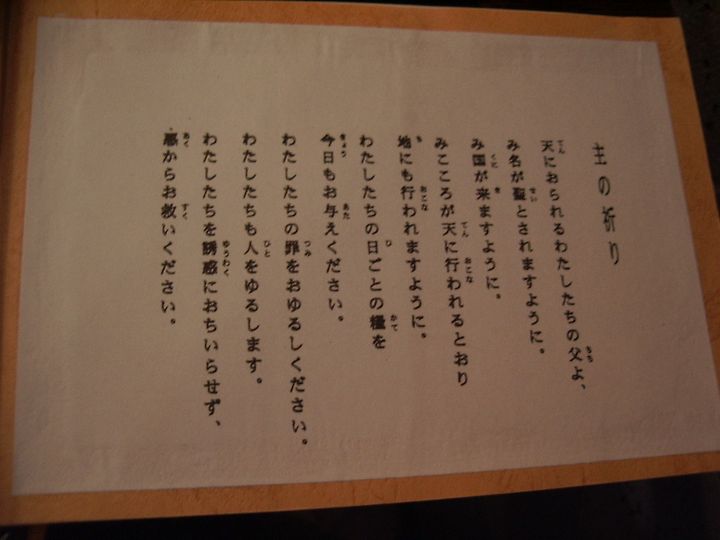 主の祈り
天におられるわたしたちの父よ、
み名が聖とされますように。
み国が来ますように。
みこころが天に行われるとおり
地にも行われますように。
わたしたちの日ごとの糧を
今日もお与えください。
わたしたちの罪をおゆるしください。
わたしたちも人をゆるします。
わたしたちを誘惑におちいらせず、
悪からお救いください。